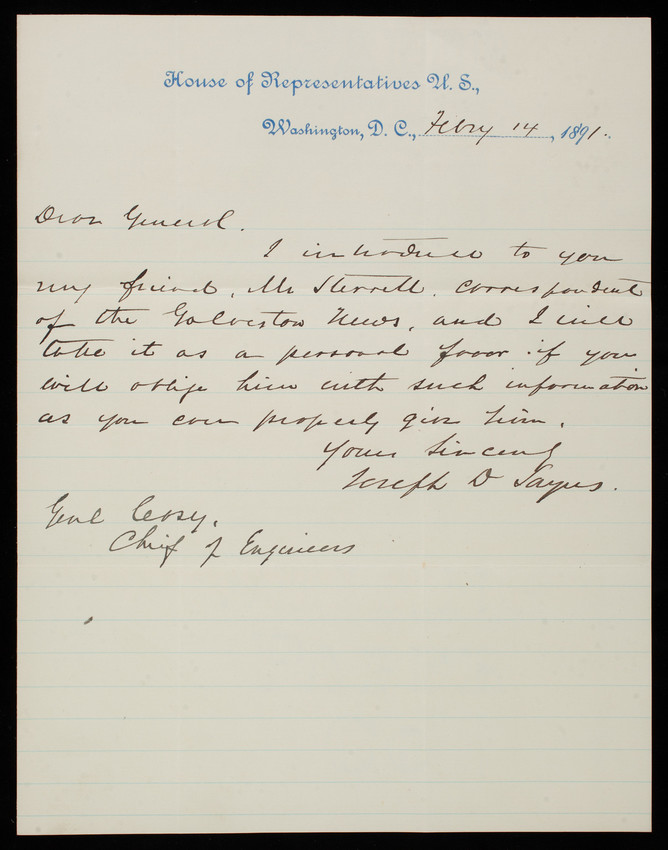 House of Representatives U. S.,
Washington, D. C., Febry 14, 1891.
Dear General.
I introduce to you
my friend, Mr Sterrett. correspondent
of the Galveston News, and I will
take it as a personal favor if you
will oblige him with such information
as you can properly give him.
Yours Sincerely
Joseph D Sayers.
Genl Casey,
Chief of Engineers